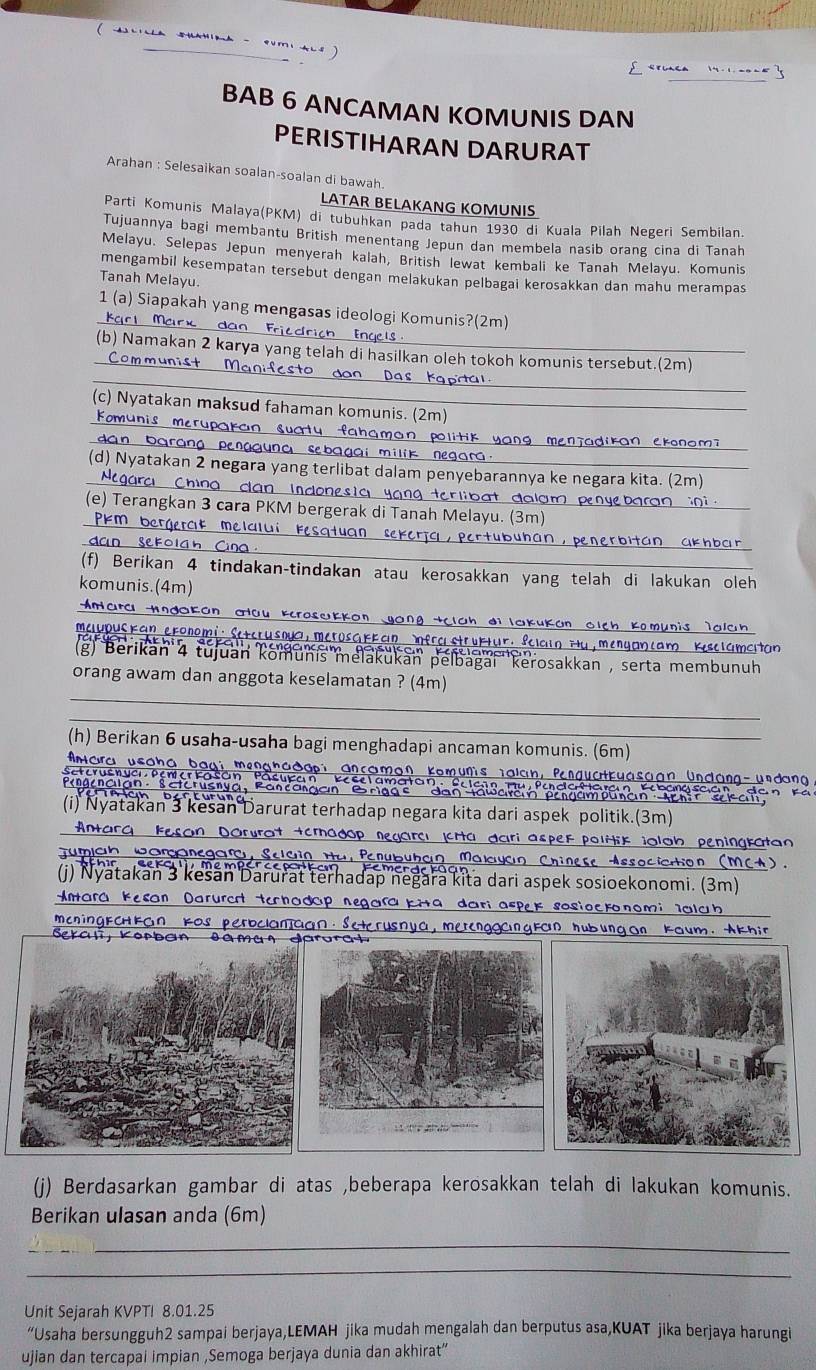 BAB 6 ANCAMAN KOMUNIS DAN
PERISTIHARAN DARURAT
Arahan : Selesaikan soalan-soalan di bawah.
LATAR BELAKANG KOMUNIS
Parti Komunis Malaya(PKM) di tubuhkan pada tahun 1930 di Kuala Pilah Negeri Sembilan.
Tujuannya bagi membantu British menentang Jepun dan membela nasib orang cina di Tanah
Melayu. Selepas Jepun menyerah kalah, British lewat kembali ke Tanah Melayu. Komunis
mengambil kesempatan tersebut dengan melakukan pelbagai kerosakkan dan mahu merampas
Tanah Melayu.
1 (a) Siapakah yang mengasas ideologi Komunis?(2m)
Karl Marx dan Friedrich Engels.
(b) Namakan 2 karya yang telah di hasilkan oleh tokoh komunis tersebut.(2m)
Communist Manifesto dan Das Kapital.
(c) Nyatakan maksud fahaman komunis. (2m)
Komunis merupakan suatu fahaman politik yang menjadikan ekonomi
dan barang pengguna sebagai milik negara.
(d) Nyatakan 2 negara yang terlibat dalam penyebarannya ke negara kita. (2m)
Negara China dan Indonesia yang terlibat dalam penyebaran ini.
(e) Terangkan 3 cara PKM bergerak di Tanah Melayu. (3m)
PKM bergerak melalui kesatuan sekerja, pertubuhan, penerbitan akhbar
dan sekolah Cina.
(f) Berikan 4 tindakan-tindakan atau kerosakkan yang telah di lakukan oleh
komunis.(4m)
Antara tindakan atau kerosakkan yang telah dilakukan oleh komunis ialah
melumpuskan ekonomi. Seterusnya, merosakkan infrastruktur. Selain itu, mengancam keselamatan
rakyat. Akhir sekali, mengancam pasukan keselamatan.
(g) Berikan 4 tujuan komunis melakukan pelbagai kerosakkan , serta membunuh
orang awam dan anggota keselamatan ? (4m)
(h) Berikan 6 usaha-usaha bagi menghadapi ancaman komunis. (6m)
Antara usaha bagi menghadapi ancaman komunis ialah, Penguatkuasaan Undang-undang.
Seterusnya, pemerkasan pasukan keselamatan. Selain itu, Pendaftaran kebangsaan dan ka
Pengenalan. Seterusnya, Rancangan Briggs dan tawaran pengampunan. Akhir sekali,
Perintah berkurung.
(i) Nyatakan 3 kesan Darurat terhadap negara kita dari aspek politik.(3m)
Antara kesan Darurat ternadap negara kita dari aspek politik ialah peningkatan
Jumlah warganegara, Selain itu, Penubuhan Malayan Chinese Association (MCA).
Akhir sekali, mempercepatkan kemerdekaan.
(j) Nyatakan 3 kesan Darurat terhadap negara kita dari aspek sosioekonomi. (3m)
Antara kesan Darurat terhadap negara kita dari aspek sosioekonomi ialah
meningkatkan kos perbelanjaan. Seterusnya, merenggangkan hubungan kaum. Akhir
sekali, korban zaman darurat
(j) Berdasarkan gambar di atas ,beberapa kerosakkan telah di lakukan komunis.
Berikan ulasan anda (6m)
Unit Sejarah KVPTI 8.01.25
"Usaha bersungguh2 sampai berjaya,LEMAH jika mudah mengalah dan berputus asa,KUAT jika berjaya harungi
ujian dan tercapai impian ,Semoga berjaya dunia dan akhirat"